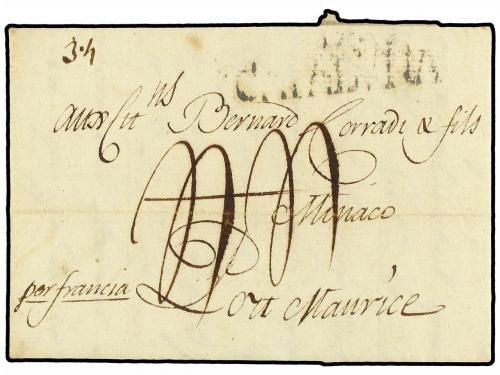 3.4
CATALUÑA
aux Cit.ns Bernard Corradi & fils
Minaco
per francia Port Maurice